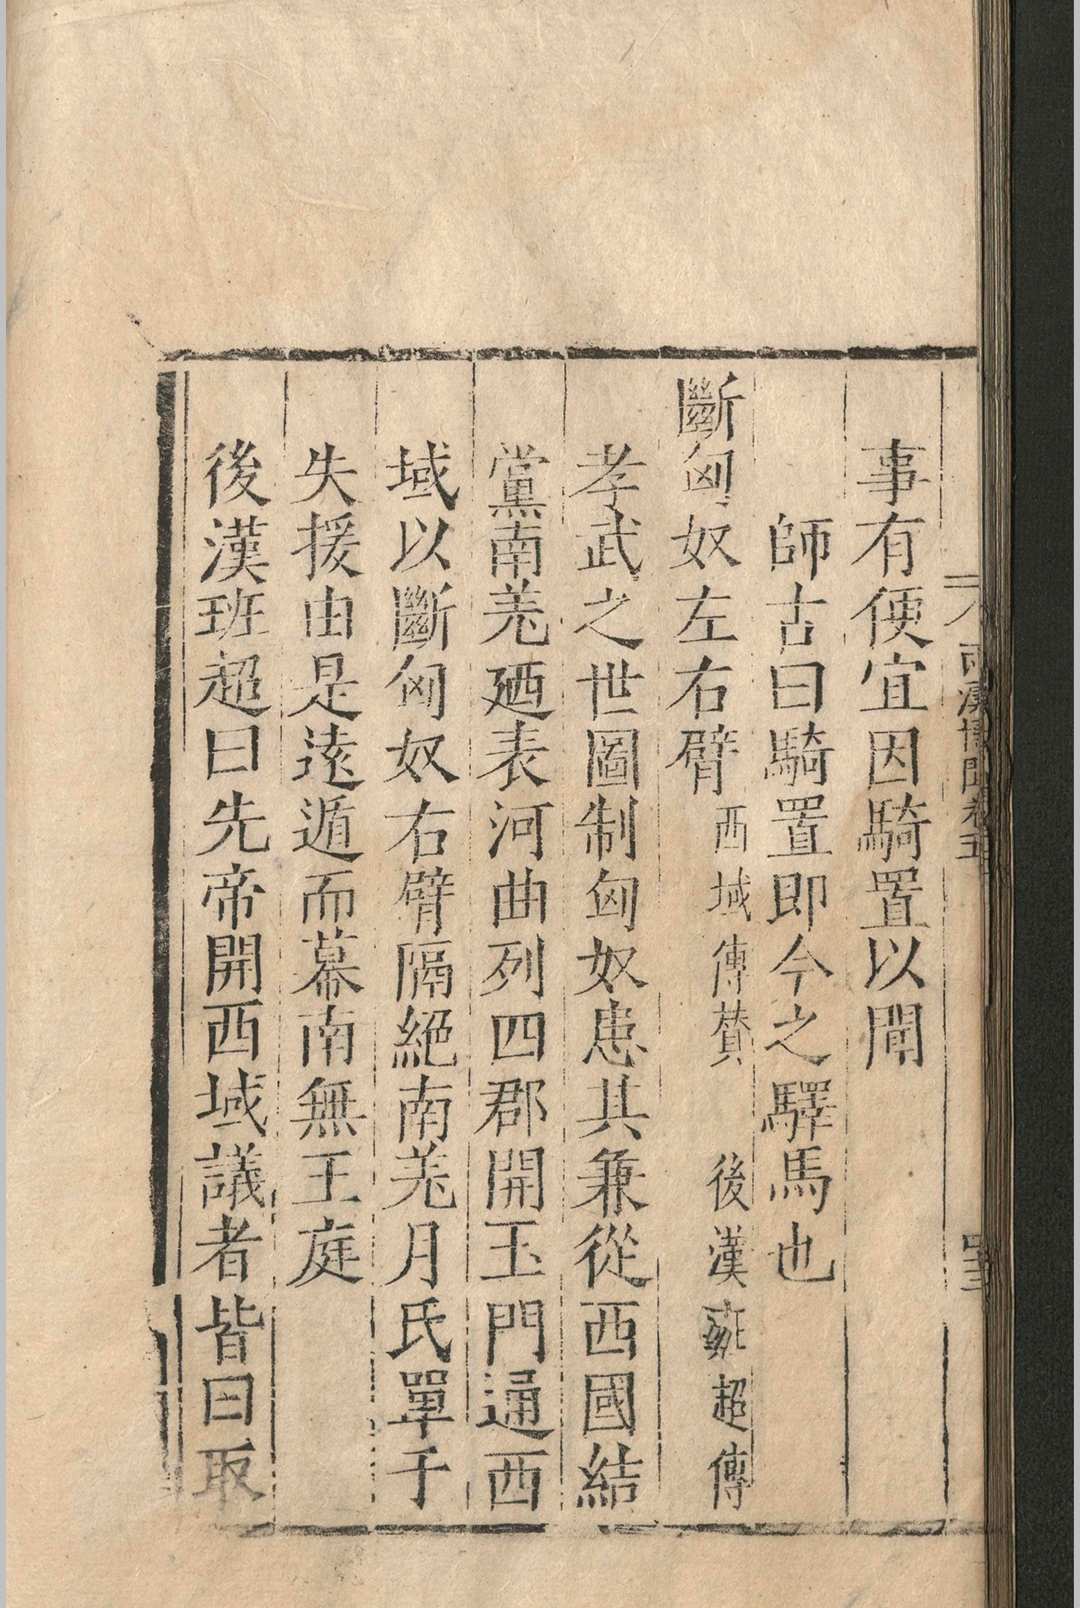 兩漢博聞卷五
事有便宜因騎置以聞
師古曰騎置即今之驛馬也
斷匈奴左右臂 西域傳賛 後漢班超傳
孝武之世圖制匈奴患其兼從西國結
黨南羌廼表河曲列四郡開玉門通西
域以斷匈奴右臂隔絕南羌月氏單于
失援由是遠遁而幕南無王庭
後漢班超曰先帝開西域議者皆曰取